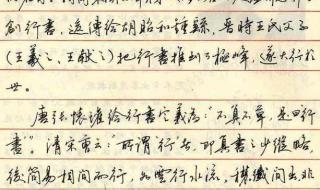 创行書，遂傳给胡昭和鍾繇，晋時王氏父子
(王羲之、王献之)把行書推到了極峰，遂大行於
世。
唐張懷瓘给行書定義为："不真不草，是曰行
書"。清宋曹云："所谓行者，即真書之少縱略，
後簡易相間而行，如雲行水流，穠纖間出，非